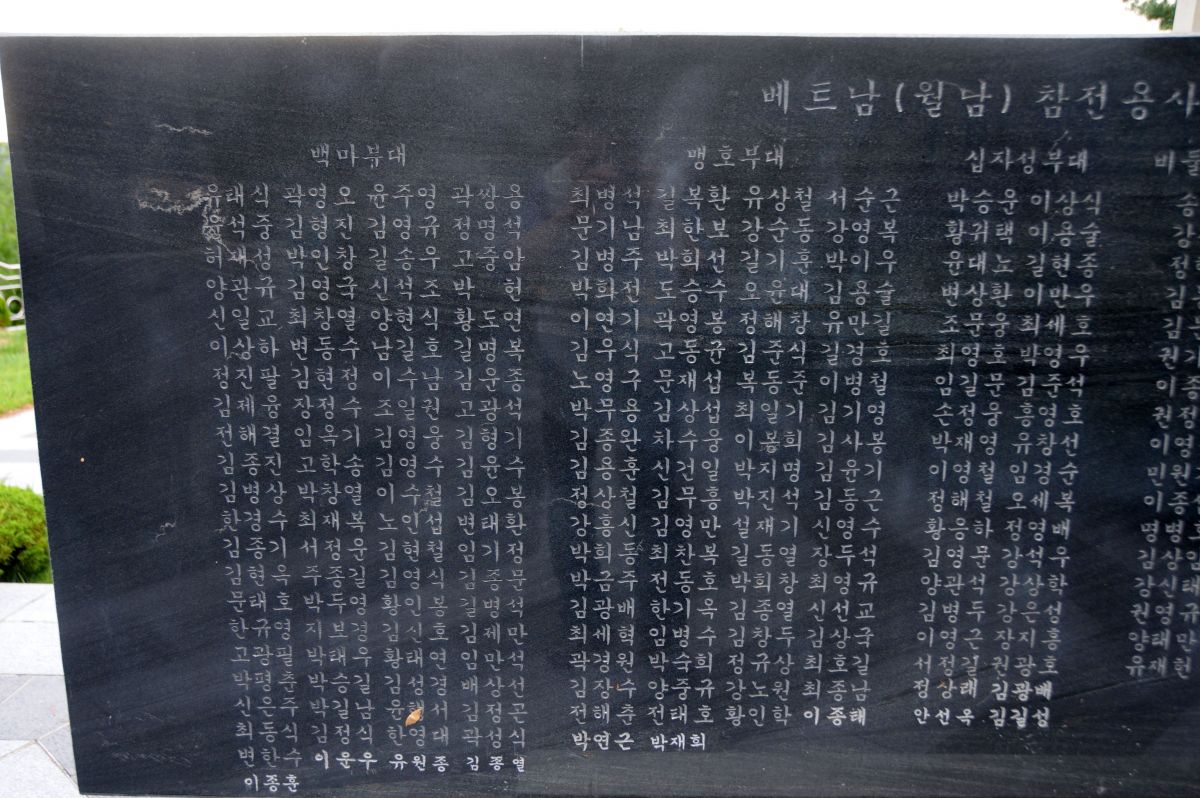 베트남(월남) 참전용사
백마부대
유태식 곽영오 윤주영 곽쌍용
윤석중 김형진 김영규 정명석
허재성 박인창 길송우 고중암
양관규 김영국 신석조 박 헌
신일교 최창열 양현식 황도연
이상하 변동수 남길호 길명복
정진팔 김현정 이수남 김운종
김제웅 장정수 조일권 고광석
전해결 임옥기 김영웅 김형기
김종진 고학송 김영수 김윤수
김병상 박창열 이수철 김오봉
한경수 최재복 노인섭 변태환
김종기 서정운 김현철 임기정
김현욱 주종길 김영식 김종문
문태호 박두영 황인봉 길병석
한규영 지보경 김신호 김제만
고광필 박태우 황태연 임만석
박평춘 박승길 김성경 배상선
신우주 박길남 김정곤
최동식 김정식 한영대 곽성식
변한수 이운우 유원종 김종열
이종훈
맹호부대
최병석 길복환 유상철 서순근
문기남 최한보 강순동 강영복
김병주 박희선 길기훈 박이우
박희전 도승수 오윤대 김용술
이연기 곽영봉 정해창 유만길
김우식 고동균 김준석 길경호
노영구 문재섭 복동준 이병철
박무용 김상섭 최일기 김기영
김종완 차수웅 이봉희 김사봉
김용훈 신건일 박지명 김윤기
정상철 김무흥 박진석 김동근
강흥신 김영만 설재기 신영수
박희동 최찬복 길동열 장두석
박금주 전동호 박희창 최영규
김광배 한기옥 김종열 신선교
최세혁 임병수 김창두 김상국
곽경원 박숙희 정규상 최호길
김장수 양중규 강노원 최종남
전해춘 전태호 황인학 이종태
박연근 박재희
십자성부대
박승운 이상식
황귀택 이용술
윤대노 길현종
변상환 이만우
조문웅 최세호
최영호 박영우
임길문 김준석
손정웅 홍영호
박재영 유창선
이영철 임경순
정해철 오세복
황응하 정영배
김영문 강석우
양관석 강상학
김병두 강은성
이영근 장지흥
서정길 권광호
정상래 김광배
안선옥 김길섭
비둘
송
강
정
김
김
권기
이종
권정
이영
민원
이종
명병
김상
강신
권영
양태민
유재헌